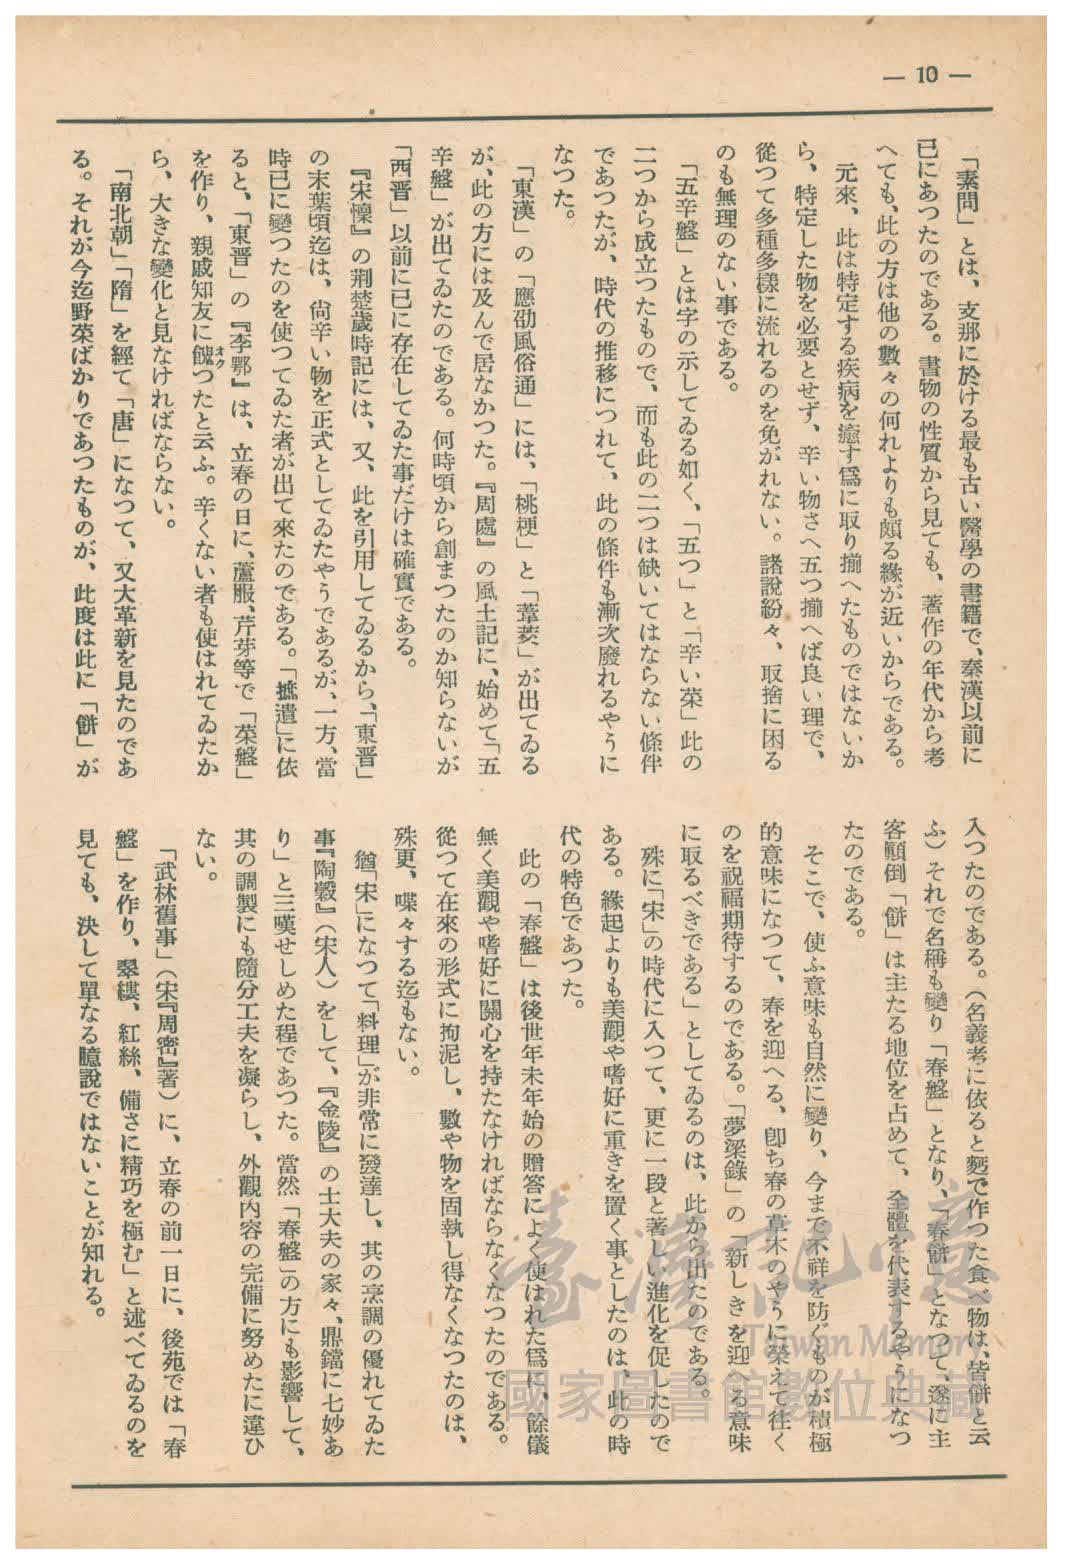 — 10 —
「素問」とは、支那に於ける最も古い醫學の書籍で、秦漢以前に
已にあつたのである。書物の性質から見ても、著作の年代から考
へても、此の方は他の數々の何れよりも頗る緣が近いからである。
元來、此は特定する疾病を癒す爲に取り揃へたものではないか
ら、特定した物を必要とせず、辛い物さへ五つ揃へば良い理で、
從つて多種多樣に流れるのを免がれない。諸說紛々、取捨に困る
のも無理のない事である。
「五辛盤」とは字の示してゐる如く、「五つ」と「辛い菜」此の
二つから成立つたもので、而も此の二つは缺いてはならない條件
であつたが、時代の推移につれて、此の條件も漸次廢れるやうに
なつた。
「東漢」の「應劭風俗通」には、「桃梗」と「葦茭」が出てゐる
が、此の方には及んで居なかつた。『周處』の風土記に、始めて「五
辛盤」が出てゐたのである。何時頃から創まつたのか知らないが
「西晋」以前に已に存在してゐた事だけは確實である。
『宋懍』の荆楚歲時記には、又、此を引用してゐるから、「東晋」
の末葉頃迄は、尙辛い物を正式としてゐたやうであるが、一方、當
時已に變つたのを使つてゐた者が出て來たのである。「摭遺」に依
ると、「東晋」の『李鄂』は、立春の日に、蘆服、芹芽等で「菜盤」
を作り、親戚知友に餽オクつたと云ふ。辛くない者も使はれてゐたか
ら、大きな變化と見なければならない。
「南北朝」「隋」を經て「唐」になつて、又大革新を見たのであ
る。それが今迄野菜ばかりであつたものが、此度は此に「餠」が
入つたのである。（名義考に依ると麪で作つた食べ物は、皆餠と云
ふ）それで名稱も變り「春盤」となり、「春餠」となつて、遂に主
客顚倒「餠」は主たる地位を占めて、全體を代表するやうになつ
たのである。
そこで、使ふ意味も自然に變り、今まで不祥を防ぐものが積極
的意味になつて、春を迎へる、卽ち春の草木のやうに榮えて往く
のを祝福期待するのである。「夢梁錄」の「新しきを迎へる意味
に取るべきである」としてゐるのは、此から出たのである。
殊に「宋」の時代に入つて、更に一段と著しい進化を促したので
ある。緣起よりも美觀や嗜好に重きを置く事としたのは、此の時
代の特色であつた。
此の「春盤」は後世年末年始の贈答によく使はれた爲に、餘儀
無く美觀や嗜好に關心を持たなければならなくなつたのである。
從つて在來の形式に拘泥し、數や物を固執し得なくなつたのは、
殊更、喋々する迄もない。
猶「宋」になつて「料理」が非常に發達し、其の烹調の優れてゐた
事『陶穀』（宋人）をして、『金陵』の士大夫の家々、鼎鐺に七妙あ
り」と三嘆せしめた程であつた。當然「春盤」の方にも影響して、
其の調製にも隨分工夫を凝らし、外觀內容の完備に努めたに違ひ
ない。
「武林舊事」（宋『周密』著）に、立春の前一日に、後苑では「春
盤」を作り、翠縷、紅絲、備さに精巧を極む」と述べてゐるのを
見ても、決して單なる臆說ではないことが知れる。
臺灣記憶
Taiwan Memory
國家圖書館數位典藏